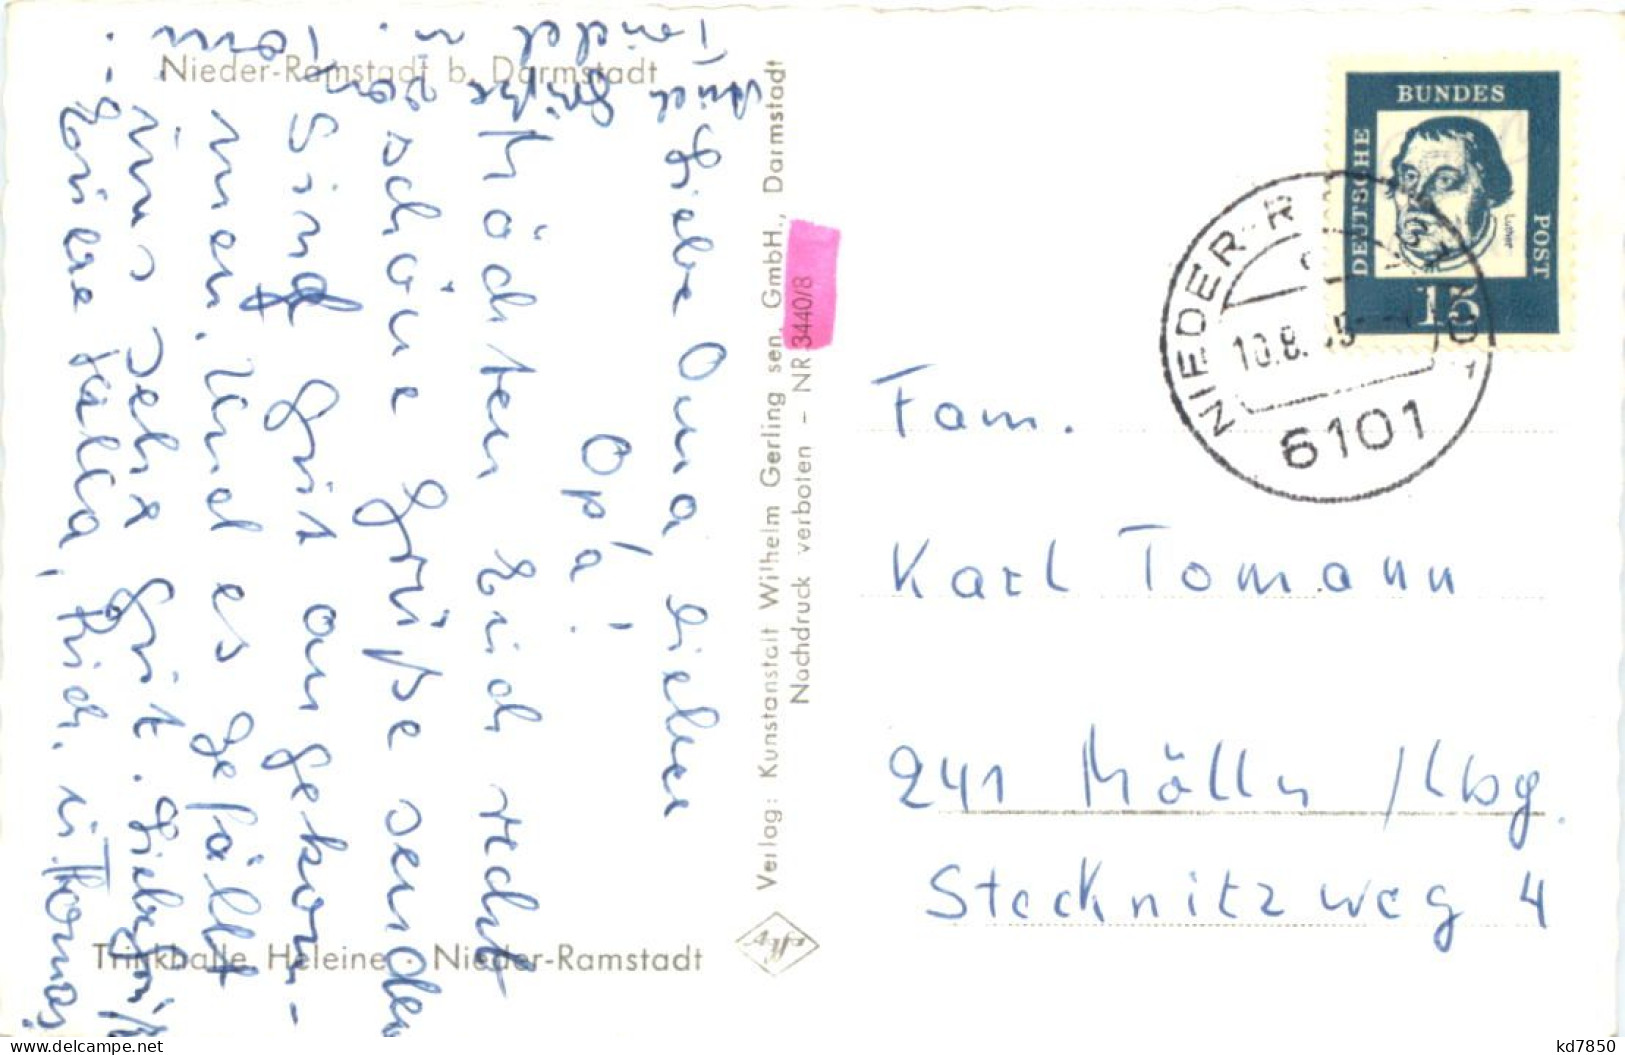 Nieder-Ramstadt b. Darmstadt
Liebe Oma lieber
Opa!
Möchten Euch recht
schöne Grüße senden
Sind gut angekom-
men. Und es gefällt
uns sehr gut. Liebe Grüße
Eure Jutta, Rich. u. Thomas
Auch Grüße von
u.
Trinkhalle Heleine · Nieder-Ramstadt
Verlag: Kunstanstalt Wilhelm Gerling sen. GmbH., Darmstadt
Nachdruck verboten - NR 3440/8
Agfa
DEUTSCHE
BUNDES
POST
Luther
15
NIEDER-R
10.8.
6101
Fam.
Karl Tomann
241 Mölln /Lbg.
Stecknitzweg 4
kd7850